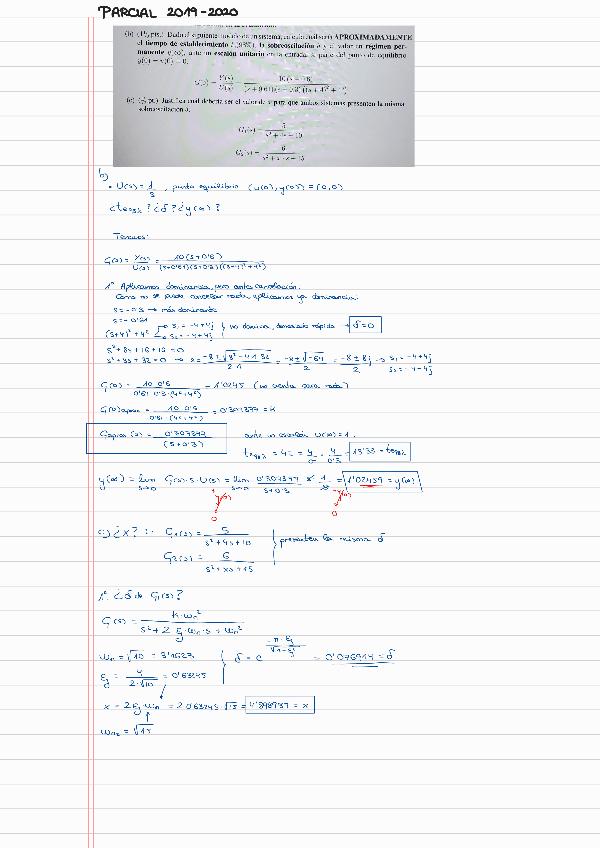 PARCIAL 2019-2020
(b) (1½ pts.) Dado el siguiente modelo de un sistema, calcula cuál sería APROXIMADAMENTE
el tiempo de establecimiento t (98%), la sobreoscilación δ y el valor en régimen per-
manente y(∞), ante un escalón unitario en la entrada, si parte del punto de equilibrio
u(0) = y(0) = 0.
(c) (½ pt.) Justifica cuál debería ser el valor de x para que ambos sistemas presenten la misma
sobreoscilación δ.
G₁(s) = 5 / (s² + 4s + 10)
G₂(s) = 6 / (s² + x·s + 15)
b)
• U(s) = 1/s , punto equilibrio (u(0), y(0)) = (0,0)
¿te98%? ¿δ? ¿y(∞)?
Tenemos:
G(s) = Y(s)/U(s) = 10(s+0'6) / ((s+0'61)(s+0'3)((s+4)²+4²))
1º Aplicamos dominancia, pero antes cancelación.
Como no se puede cancelar nada, aplicamos ya dominancia:
s = -0'3 → más dominante
s = -0'61
(s+4)² + 4² s₁ = -4+4j s₂ = -4-4j } no domina, demasiado rápida → δ=0
s² + 8s + 16 + 16 = 0
s² + 8s + 32 = 0 → s = (-8 ± √(8² - 4·1·32)) / 2·1 = (-8 ± √-64) / 2 = (-8 ± 8j) / 2 → s₁ = -4+4j s₂ = -4-4j
G(0) = 10·0'6 / (0'61·0'3·(4²+4²)) = 1'0245 (no valdría para nada)
G(0)aprox = 10·0'6 / (0'61·(4²+4²)) = 0'307377 = K
Gaprox(s) = 0'307377 / (s+0'3) ante un escalón U(s)=1.
te98% = 4τ = 4/σ = 4/0'3 = 13'33 = te98%
y(∞) = lim s→0 G(s)·s·U(s) = lim s→0 0'307377/(s+0'3) · s · 1/s = 1'02459 = y(∞)
c) ¿x? :· G₁(s) = 5 / (s² + 4s + 10)
G₂(s) = 6 / (s² + xs + 15) } presenten la misma δ
1º ¿δ de G₁(s)?
G(s) = K·ωn² / (s² + 2·ξ·ωn·s + ωn²)
ωn = √10 = 3'1623
ξ = 4 / (2·√10) = 0'63245 } δ = e^(-π·ξ/√(1-ξ²)) = 0'076914 = δ
x = 2ξ·ωn = 2·0'63245·√15 = 4'898937 = x
ωn₂ = √15